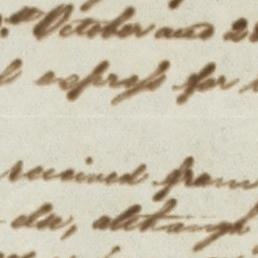 October and 2
express for
received from
else, although